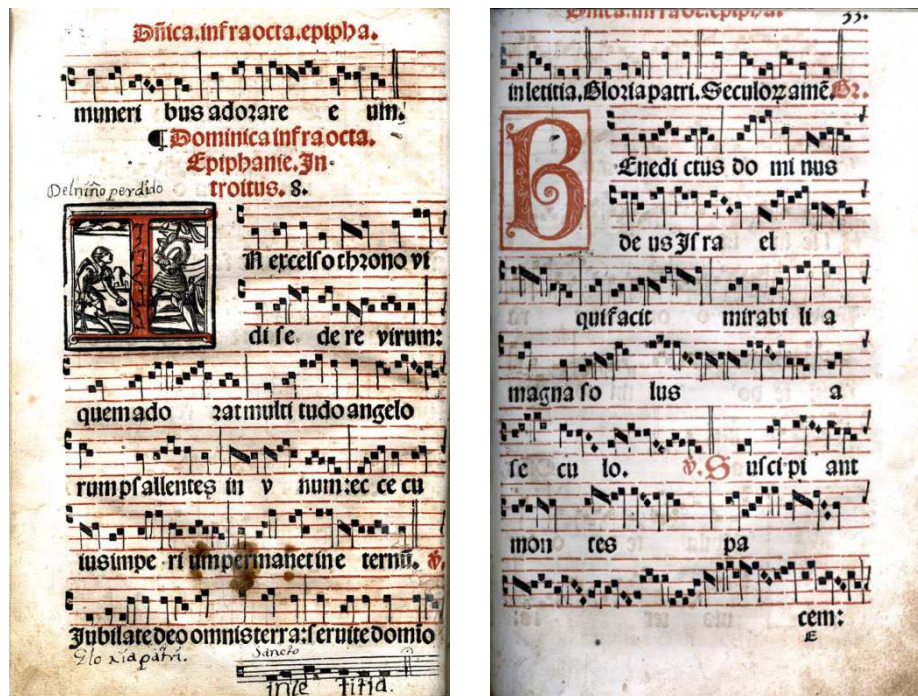 Dñica.infraocta.epipha.
muneri bus adorare e um.
¶Dominica infraocta.
Epiphanie. In-
troitus. 8.
Del niño perdido
IN excelso throno vi
di se de re virum:
quem ado rat multi tudo angelo
rum psallentes in v num: ec ce cu
ius impe ri um permanet in e ternũ. ℣.
Jubilate deo omnis terra: seruite domio
Glo ria patri.
Sancto
in le titia.
Dñica.infraoc.epipha. 33.
in letitia. Gloria patri. Seculoꝝ amẽ. Gr.
BEnedi ctus do mi nus
de us Is ra el
qui facit mirabi li a
magna so lus a
se cu lo. ℣. S usci pi ant
mon tes pa
cem:
E